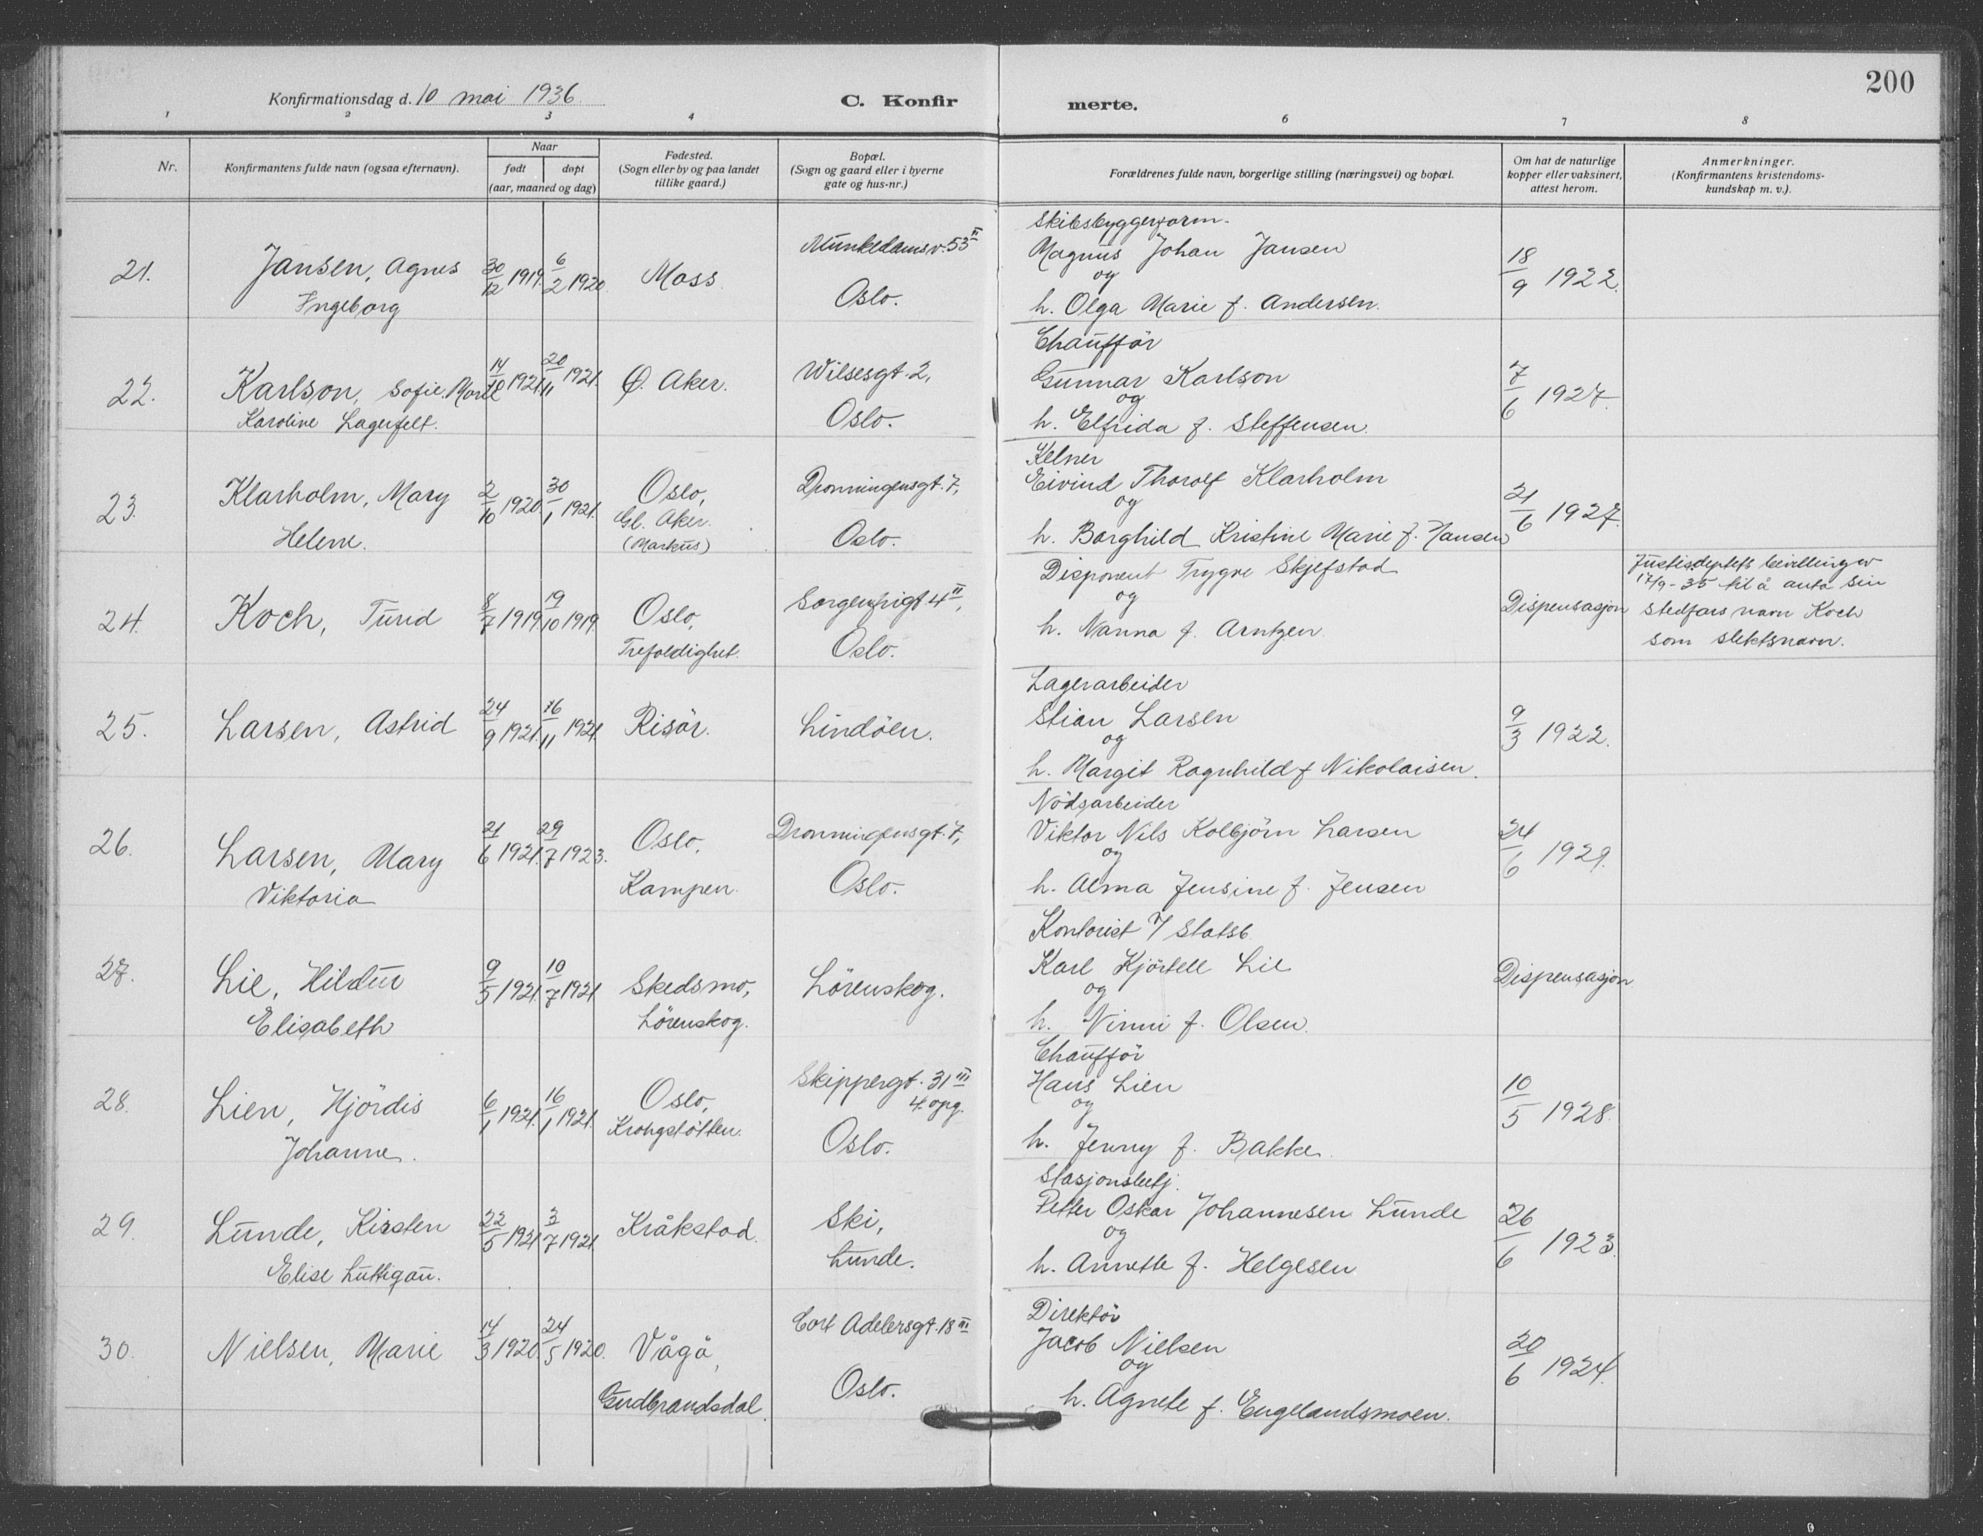 200
Konfirmationsdag d. 10 mai 1936.
C. Konfir
merte.
1 2 3 4 6 7 8
Nr.
Konfirmantens fulde navn (ogsaa efternavn).
Naar
født døpt
(aar, maaned og dag)
Fødested.
(Sogn eller by og paa landet
tillike gaard.)
Bopæl.
(Sogn og gaard eller i byerne
gate og hus-nr.)
Forældrenes fulde navn, borgerlige stilling (næringsvei) og bopæl.
Om hat de naturlige
kopper eller vaksinert,
attest herom.
Anmerkninger.
(Konfirmantens kristendoms-
kundskap m. v.).
21. Jansen, Agnes
Ingeborg
30/12 1919. 6/2 1920.
Moss.
Munkedamsv. 53 II
Oslo.
Skibsbyggerform.
Magnus Johan Jansen
og
h. Olga Marie f. Andersen.
18/9 1922.
22. Karlson, Sofie Marie
Karoline Lagerfelt.
14/10 1921. 20/11 1921.
Ø. Aker.
Wilsesgt. 2,
Oslo.
Chauffør
Gunnar Karlson
og
h. Elfrida f. Steffensen.
7/6 1927.
23. Klarholm, Mary
Helene.
2/10 1920. 30/1 1921.
Oslo,
Gl. Aker.
(Markus)
Dronningensgt. 7,
Oslo.
Kelner
Eivind Thorolf Klarholm
og
h. Borghild Kristine Marie f. Hansen
21/6 1927.
24. Koch, Turid
8/7 1919. 19/10 1919.
Oslo,
Trefoldighet.
Sorgenfrigt 4 II,
Oslo.
Disponent Trygve Skjefstad
og
h. Nanna f. Arntzen.
Dispensasjon
Justisdeptets bevilling av
17/9-35 til å anta sin
stedfars navn Koch
som slektsnavn.
25. Larsen, Astrid
24/9 1921. 16/11 1921.
Risør.
Lindøen.
Lagerarbeider
Stian Larsen
og
h. Margit Ragnhild f Nikolaisen.
9/3 1922.
26. Larsen, Mary
Viktoria
21/6 1921. 29/7 1923.
Oslo,
Kampen.
Dronningensgt. 7,
Oslo.
Nödsarbeider
Viktor Nils Kolbjørn Larsen
og
h. Alma Jensine f. Jensen
24/6 1929.
27. Lie, Hildur
Elisabeth
9/5 1921. 10/7 1921
Skedsmo,
Lörenskog.
Lörenskog.
Kontorist v/ Statsb
Karl Kjørtell Lie
og
h. Ninni f. Olsen.
Dispensasjon
28. Lien, Hjördis
Johanne.
6/1 1921. 16/1 1921.
Oslo,
Krohgstøtten.
Skippergt. 31 III
4. opg.
Oslo.
Chauffør
Hans Lien
og
h. Jenny f. Bakke.
10/5 1928.
29. Lunde, Kirsten
Elise Luttigau.
22/5 1921. 3/7 1921.
Kråkstad.
Ski,
Lunde.
Stasjonsbetj.
Petter Oskar Johannesen Lunde
og
h. Annette f. Helgesen
26/6 1923.
30. Nielsen, Marie
14/3 1920. 24/5 1920.
Vågå,
Gudbrandsdal.
Cort Adelersgt. 18 III
Oslo.
Direktør
Jacob Nielsen
og
h. Agnete f. Engelandsmoen.
20/6 1924.